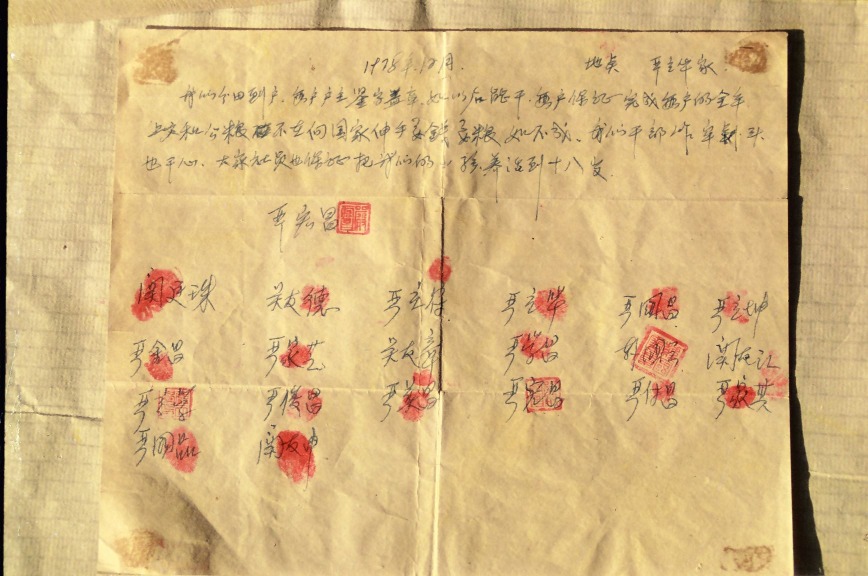 1978年12月. 地点 严立华家
我们分田到户,每户户主签字盖章,如以后能干,每户保证完成每户的全年
上交和公粮不在向国家伸手要钱要粮如不成,我们干部作牢剎头
也干心,大家社员也保证把我们的小孩养活到十八岁.
严宏昌
关廷珠 吴友德 严立符 严立华 严国昌 严立坤
严金昌 严家芝 吴友章 严学昌 韩国云 关友江
严 严俊昌 严美昌 严宏昌 严付昌 严家其
严国品 关友申